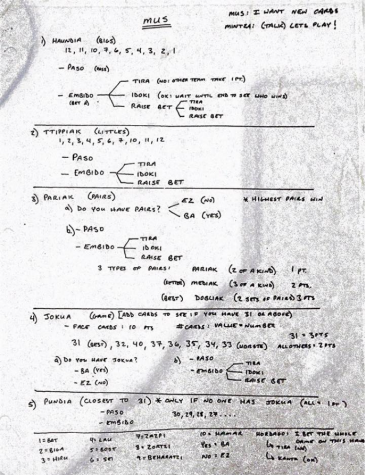 MUS
MUS: I WANT NEW CARDS
MINTZA: (TALK) LETS PLAY!
1) HAUNDIA (BIGS)
12, 11, 10, 7, 6, 5, 4, 3, 2, 1
- PASO (PASS)
- EMBIDO (BET 2)
TIRA (NO: OTHER TEAM TAKE 1 PT.)
IDOKI (OK: WAIT UNTIL END TO SEE WHO WINS)
RAISE BET
TIRA
IDOKI
RAISE BET
2) TTIPPIAK (LITTLES)
1, 2, 3, 4, 5, 6, 7, 10, 11, 12
- PASO
- EMBIDO
TIRA
IDOKI
RAISE BET
3) PARIAK (PAIRS)
a) DO YOU HAVE PAIRS?
EZ (NO)
BA (YES)
* HIGHEST PAIRS WIN
b) - PASO
- EMBIDO
TIRA
IDOKI
RAISE BET
3 TYPES OF PAIRS: PARIAK (2 OF A KIND) 1 PT.
(BETTER) MEDIAK (3 OF A KIND) 2 PTS.
(BEST) DOBLIAK (2 SETS OF PAIRS) 3 PTS
4) JOKUA (GAME) [ADD CARDS TO SEE IF YOU HAVE 31 OR ABOVE]
- FACE CARDS: 10 PTS # CARDS: VALUE = NUMBER
31 = 3 PTS
31 (BEST), 32, 40, 37, 36, 35, 34, 33 (WORSTE) ALL OTHERS: 2 PTS
a) DO YOU HAVE JOKUA?
- BA (YES)
- EZ (NO)
b) - PASO
- EMBIDO
TIRA
IDOKI
RAISE BET
5) PUNDIA (CLOSEST TO 31) * ONLY IF NO ONE HAS JOKUA (ALL = 1 PT)
- PASO
- EMBIDO
30, 29, 28, 27 ....
1 = BAT 4 = LAU 7 = ZAZPI 10 = HAMAR HORDAGO: I BET THE WHOLE GAME ON THIS HAND
2 = BIGA 5 = BOST 8 = ZORTZI YES = BA TIRA (NO)
3 = HIRU 6 = SEI 9 = BEHARATZI NO = EZ KANTA (OK)